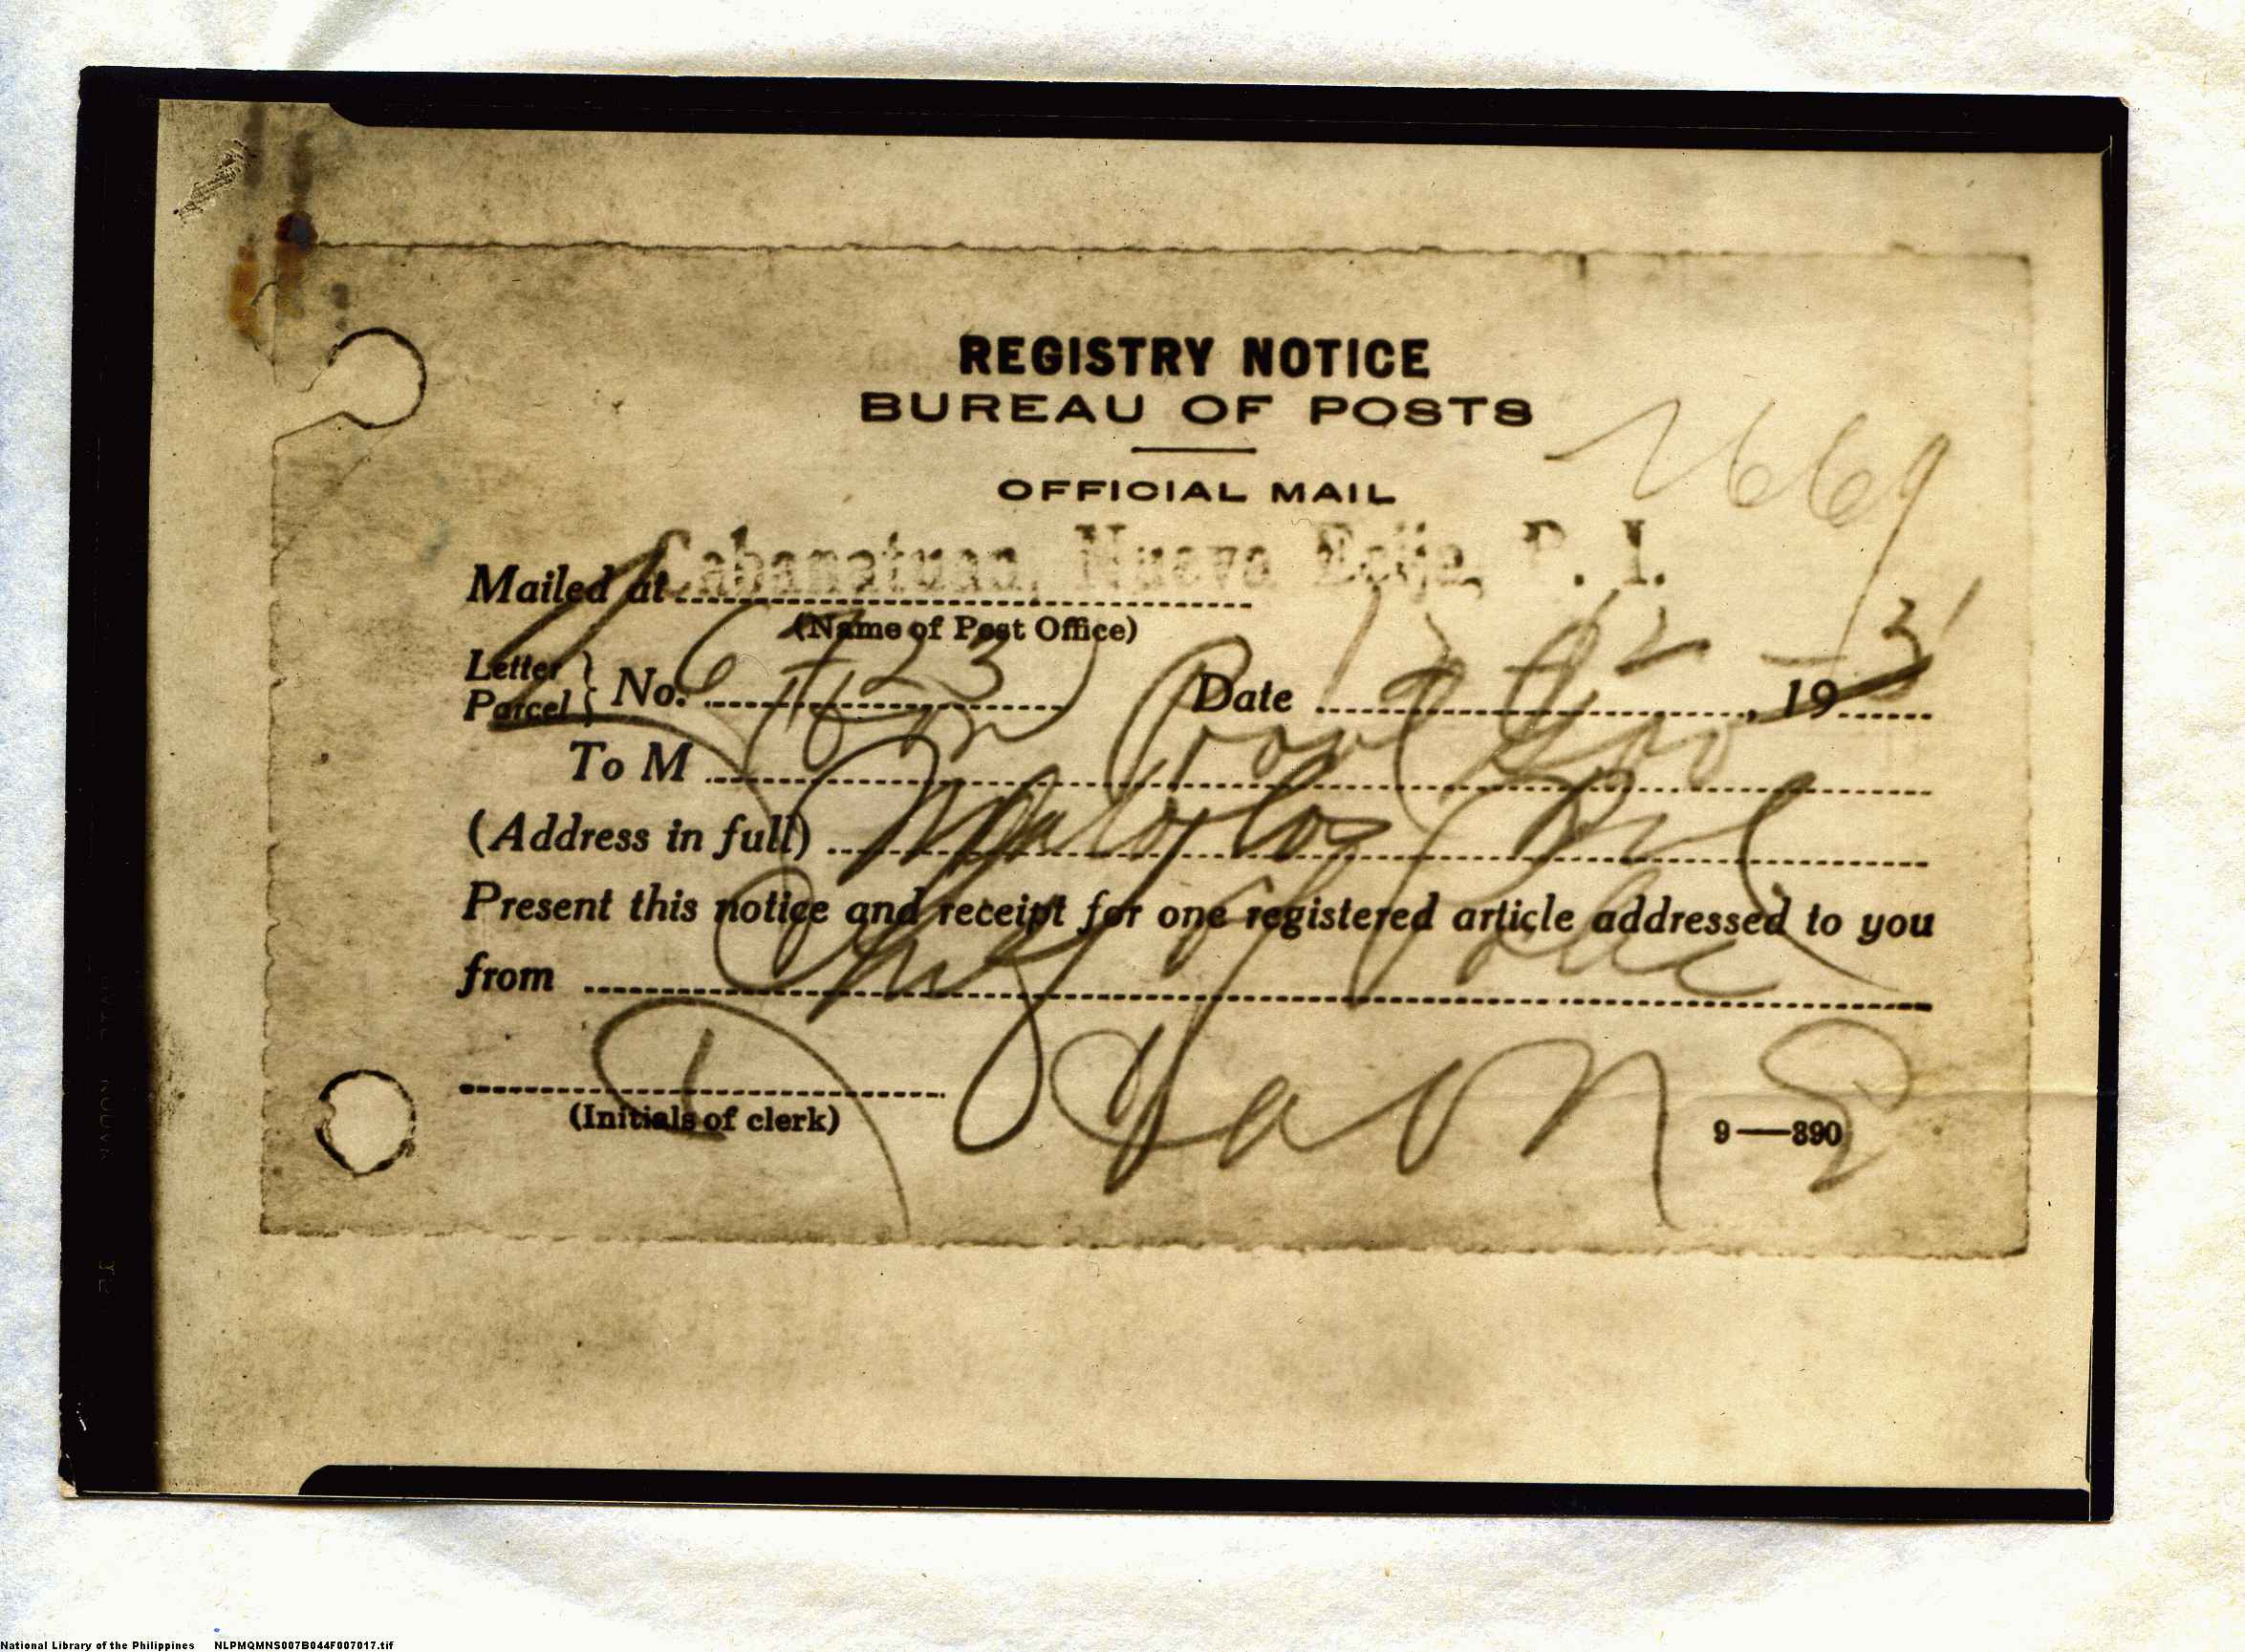 REGISTRY NOTICE
BUREAU OF POSTS
OFFICIAL MAIL
Mailed at Cabanatuan, Nueva Ecija, P. I.
(Name of Post Office)
Letter
Parcel } No. Date , 19
To M Hon
(Address in full) Malolos Bul
Present this notice and receipt for one registered article addressed to you
from Chief of Police
(Initials of clerk)
9—890
National Library of the Philippines NLPMQMNS007B044F007017.tif